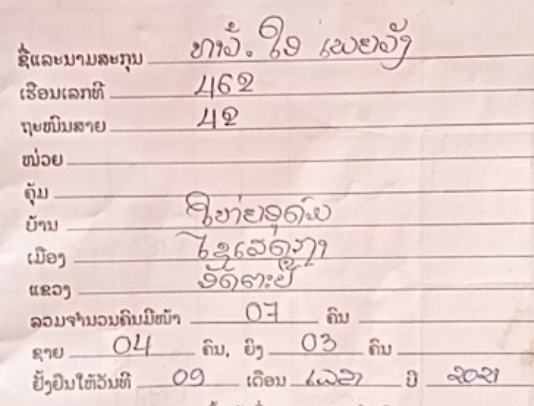 ຊື່ແລະນາມສະກຸນ ທາວ. ໃສ ເພຍວັງ
ເຮືອນເລກທີ 462
ຖະໜົນສາຍ 42
ໜ່ວຍ
ຄຸ້ມ
ບ້ານ ໃຫຍ່ອຸດົມ
ເມືອງ ໄຊເສດຖາ
ແຂວງ ອັດຕະປື
ລວມຈຳນວນຄົນມີໜ້າ 07 ຄົນ
ຊາຍ 04 ຄົນ, ຍິງ 03 ຄົນ
ຢັ້ງຢືນໃຫ້ວັນທີ 09 ເດືອນ ເມສາ ປີ 2021